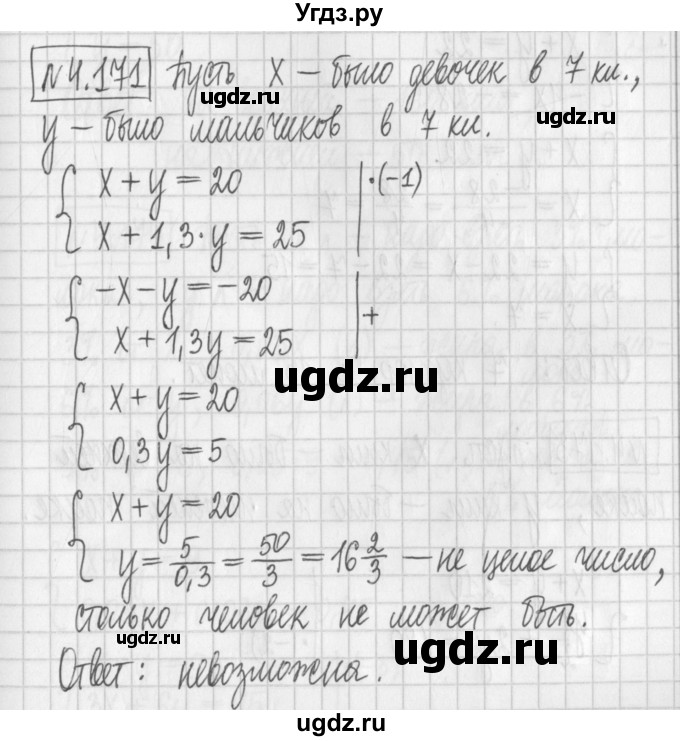 Угдз.ру
№4.171 Пусть x – было девочек в 7 кл.,
ugdz.ru
ugdz.ru
y – было мальчиков в 7 кл.
{ x + y = 20 | ·(-1)
x + 1,3·y = 25
{ -x - y = -20 | +
x + 1,3y = 25
ugdz.ru
{ x + y = 20
0,3y = 5
{ x + y = 20
y = 5/0,3 = 50/3 = 16 2/3 – не целое число,
столько человек не может быть.
ugdz.ru
ugdz.ru
Ответ: невозможна.
ugdz.ru